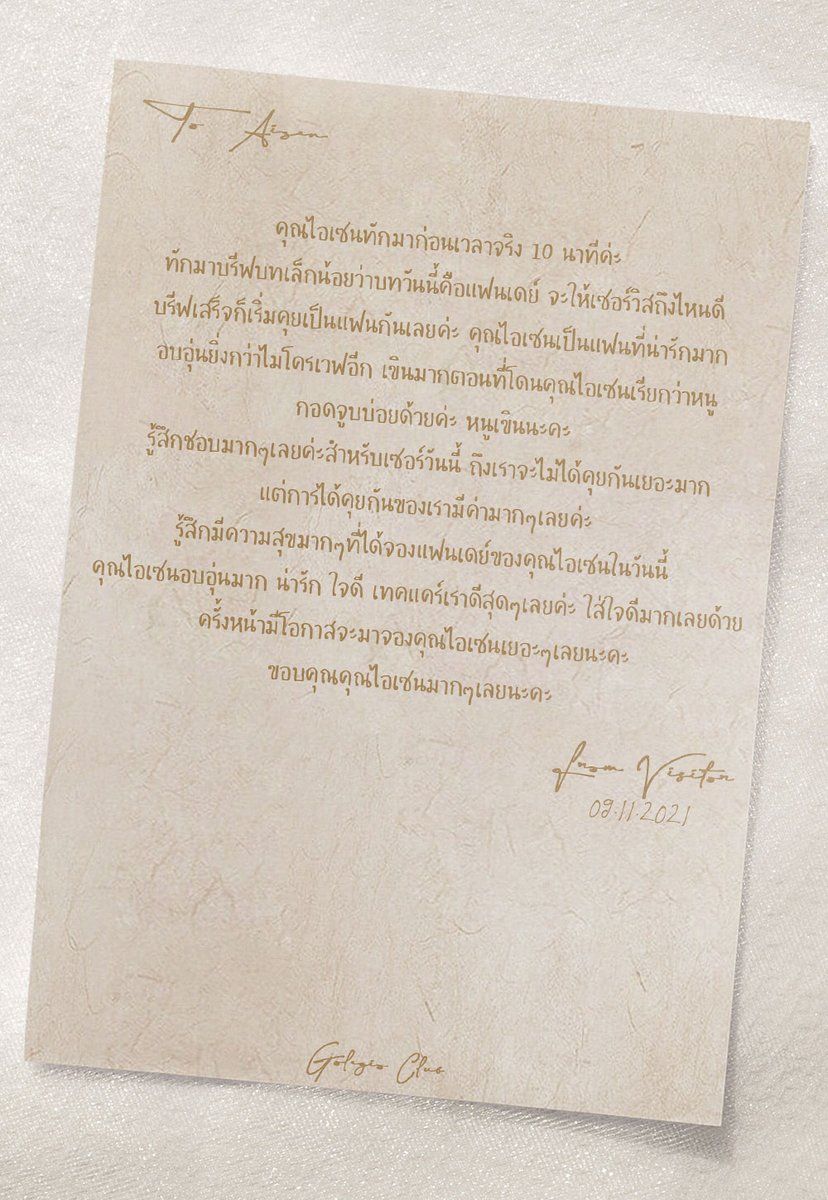 To Aizen
คุณไอเซนทักมาก่อนเวลาจริง 10 นาทีค่ะ
ทักมาบรีฟบทเล็กน้อยว่าบทวันนี้คือแฟนเดย์ จะให้เซอร์วิสถึงไหนดี
บรีฟเสร็จก็เริ่มคุยเป็นแฟนกันเลยค่ะ คุณไอเซนเป็นแฟนที่น่ารักมาก
อบอุ่นยิ่งกว่าไมโครเวฟอีก เขินมากตอนที่โดนคุณไอเซนเรียกว่าหนู
กอดจูบบ่อยด้วยค่ะ หนูเขินนะคะ
รู้สึกชอบมากๆเลยค่ะสำหรับเซอร์วันนี้ ถึงเราจะไม่ได้คุยกันเยอะมาก
แต่การได้คุยกันของเรามีค่ามากๆเลยค่ะ
รู้สึกมีความสุขมากๆที่ได้จองแฟนเดย์ของคุณไอเซนในวันนี้
คุณไอเซนอบอุ่นมาก น่ารัก ใจดี เทคแคร์เราดีสุดๆเลยค่ะ ใส่ใจดีมากเลยด้วย
ครั้งหน้ามีโอกาสจะมาจองคุณไอเซนเยอะๆเลยนะคะ
ขอบคุณคุณไอเซนมากๆเลยนะคะ
from Visitor
09.11.2021
Club